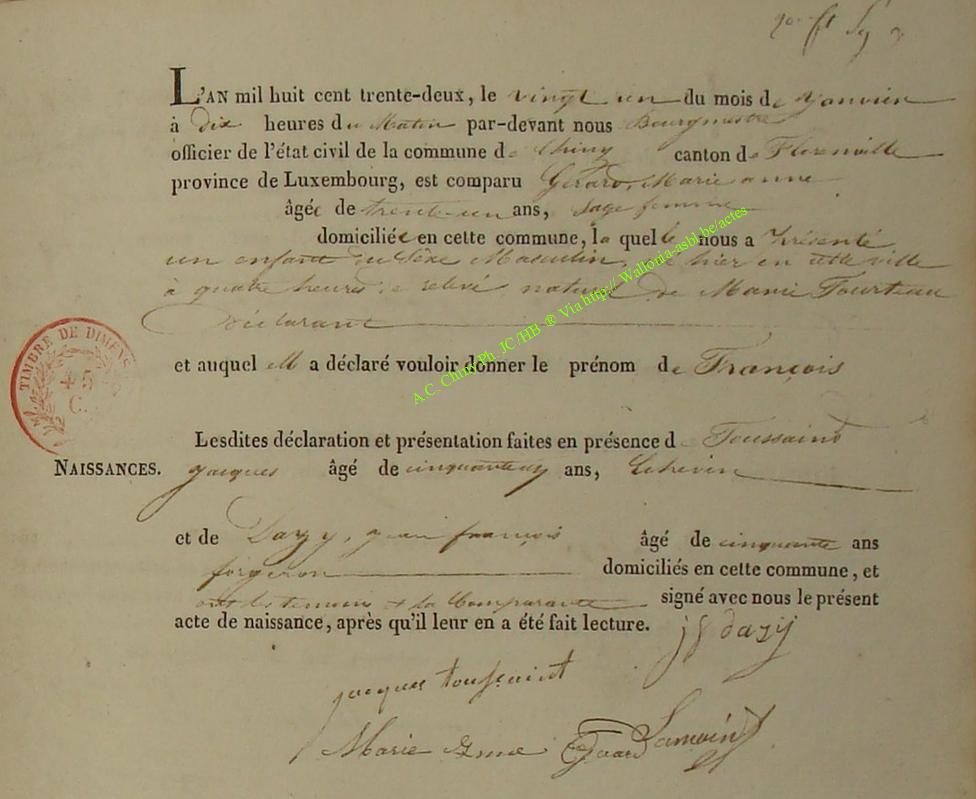 L'AN mil huit cent trente-deux, le vingt un du mois de Janvier
à dix heures du Matin par-devant nous Bourgmestre
officier de l'état civil de la commune de Chiny canton de Florenville
province de Luxembourg, est comparu Gérard, Marie anne
âgée de trente-un ans, sage femme
domiciliée en cette commune, la quelle nous a présenté
un enfant du Sexe Masculin, hier en cette ville
à quatre heures de relevé naturel de Marie Tourteau
déclarant
et auquel a déclaré vouloir donner le prénom de François
TIMBRE DE DIMENS
45
C.
Lesdites déclaration et présentation faites en présence de Toussaind
NAISSANCES.
jacques âgé de ans, Echevin
et de Dazy, jean françois âgé de cinquante ans
forgeron domiciliés en cette commune, et
ont les temoins et la Comparante signé avec nous le présent
acte de naissance, après qu'il leur en a été fait lecture.
j f dazy
jacque toussaint
Marie Anne
A.C. Chiny Ph. JC/HB ® Via http://Wallonia-asbl.be/actes